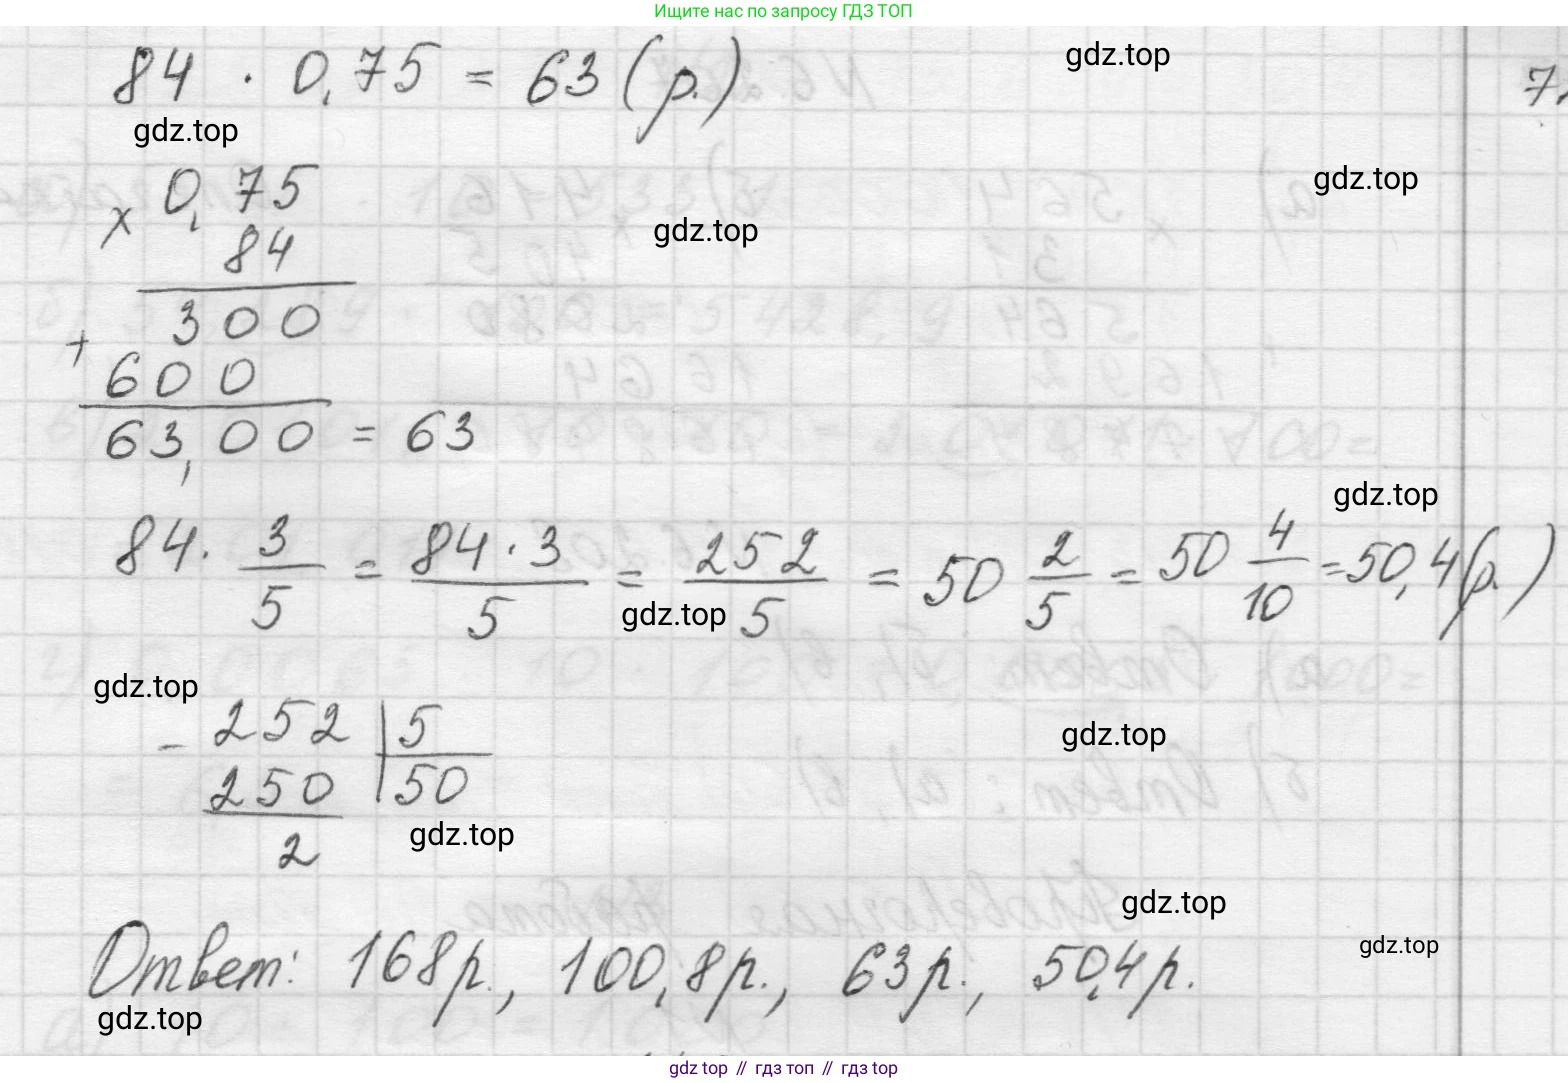 Ищите нас по запросу ГДЗ ТОП
84 · 0,75 = 63 (р.)
gdz.top
7,
gdz.top
× 0,75
84
gdz.top
gdz.top
300
+
600
63,00 = 63
gdz.top
84 · 3/5 = 84 · 3/5 = 252/5 = 50 2/5 = 50 4/10 = 50,4 (р.)
gdz.top
gdz.top
- 252 | 5
250 | 50
2
gdz.top
gdz.top
gdz.top
Ответ: 168 р., 100,8 р., 63 р., 50,4 р.
gdz.top
gdz.top
gdz top // гдз топ // гдз top